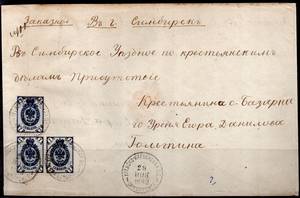 Заказное Въ г. Симбирскъ
Въ Симбирское Уѣздное по крестьянскимъ
дѣламъ Присутствіе
Крестьянина с. Базарна
го Уреня Егора Данилова
28